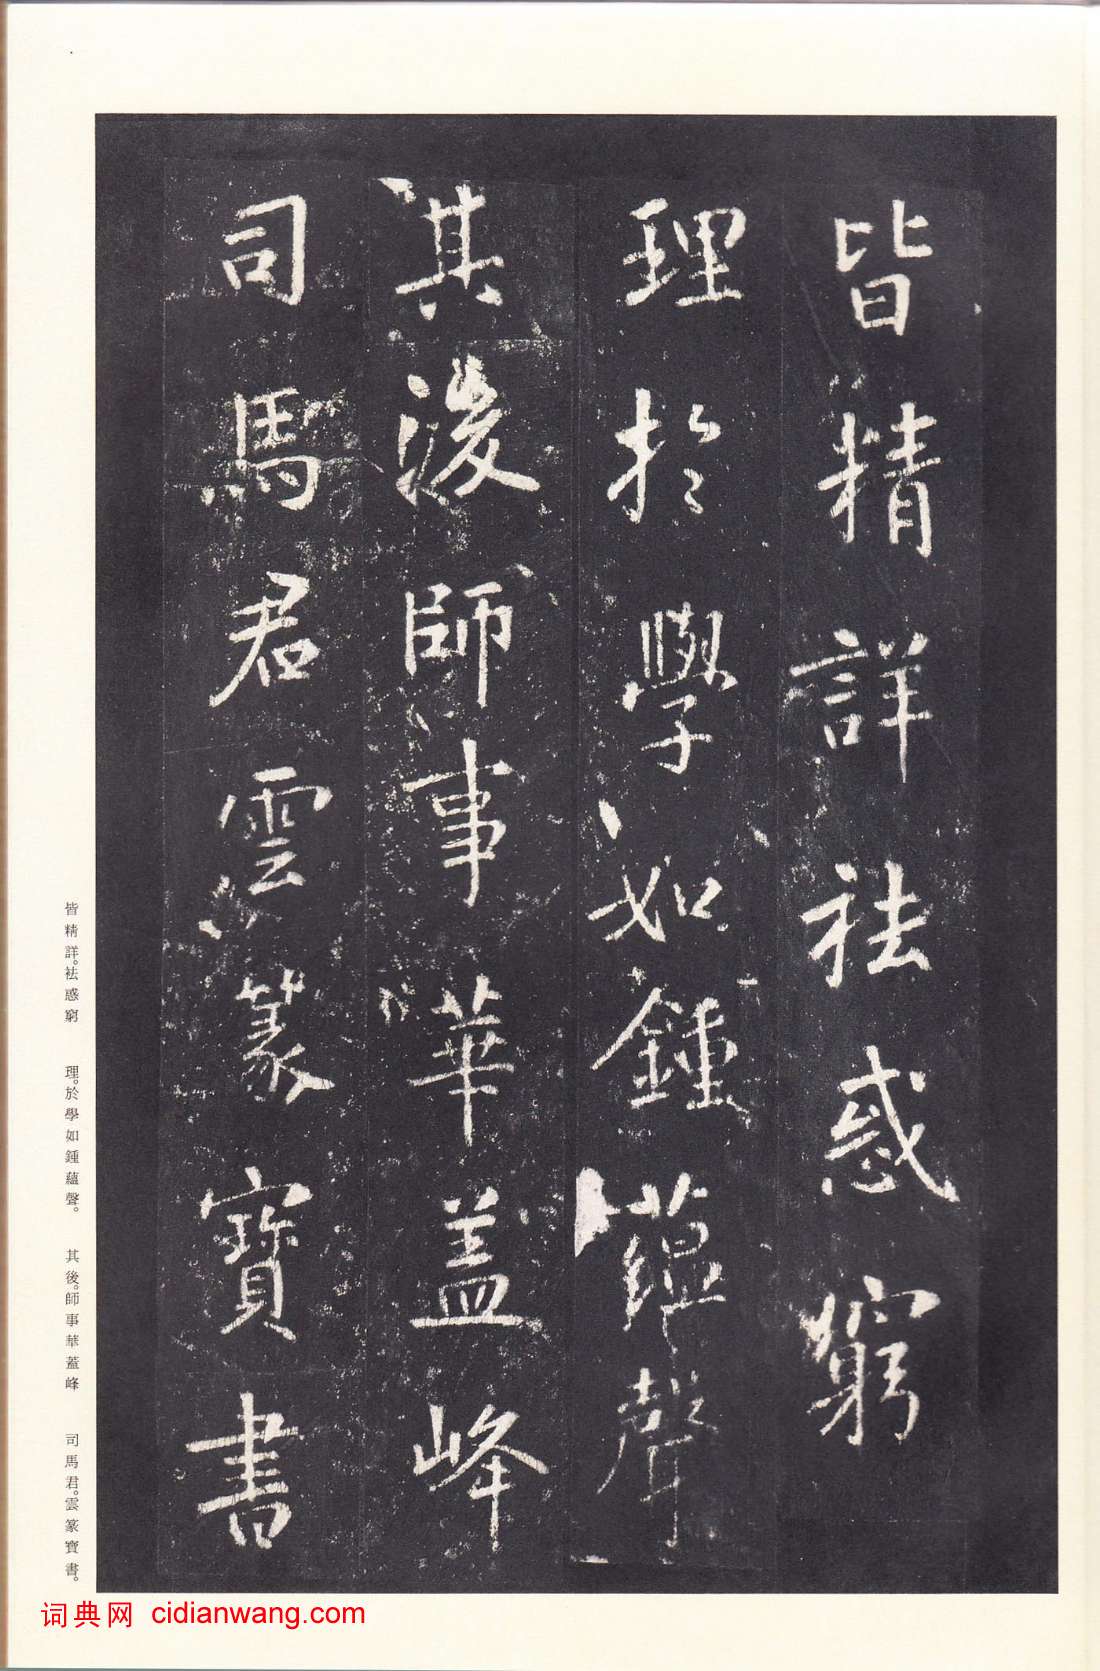 皆精詳祛惑窮
理於學如鍾蘊聲
其後師事華蓋峰
司馬君雲篆寶書
皆精詳。祛惑窮 理。於學如鍾蘊聲。 其後。師事華蓋峰 司馬君。雲篆寶書。
词典网 cidianwang.com